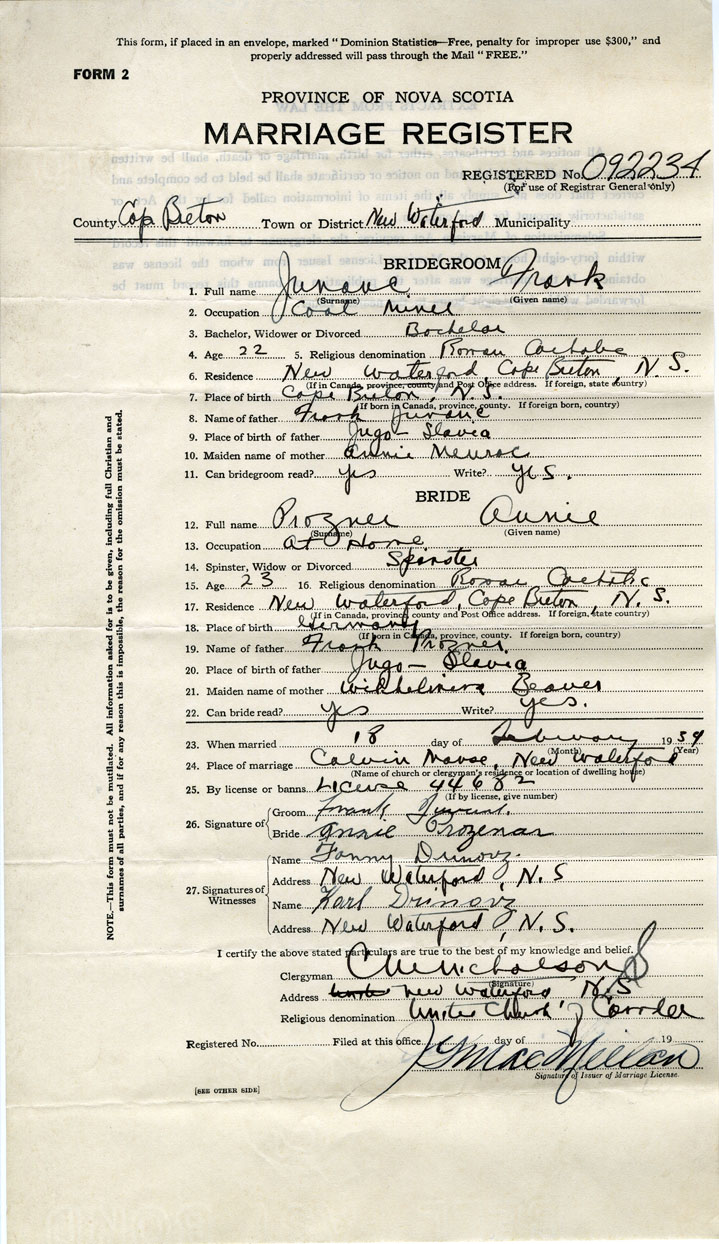 This form, if placed in an envelope, marked "Dominion Statistics—Free, penalty for improper use $300," and
properly addressed will pass through the Mail "FREE."
FORM 2
PROVINCE OF NOVA SCOTIA
MARRIAGE REGISTER
REGISTERED No. 092234
(For use of Registrar General only)
County Cape Breton Town or District New Waterford Municipality
BRIDEGROOM
1. Full name Junane Frank
(Surname) (Given name)
2. Occupation Coal Miner
3. Bachelor, Widower or Divorced Bachelor
4. Age 22 5. Religious denomination Roman Catholic
6. Residence New Waterford, Cape Breton, N.S.
(If in Canada, province, county and Post Office address. If foreign, state country)
7. Place of birth Cape Breton, N.S.
(If born in Canada, province, county. If foreign born, country)
8. Name of father Frank
9. Place of birth of father Jugo-Slavia
10. Maiden name of mother Annie
11. Can bridegroom read? yes Write? yes.
BRIDE
12. Full name Prozner Annie
(Surname) (Given name)
13. Occupation At Home
14. Spinster, Widow or Divorced Spinster
15. Age 23 16. Religious denomination Roman Catholic
17. Residence New Waterford, Cape Breton, N.S.
(If in Canada, province, county and Post Office address. If foreign, state country)
18. Place of birth Germany
(If born in Canada, province, county. If foreign born, country)
19. Name of father Frank Prozner
20. Place of birth of father Jugo-Slavia
21. Maiden name of mother Wilhelmina Beaver
22. Can bride read? yes Write? yes.
23. When married 18 day of February 1939
(Month) (Year)
24. Place of marriage Calvin Manse, New Waterford
(Name of church or clergyman's residence or location of dwelling house)
25. By license or banns License 44682
(If by license, give number)
26. Signature of Groom Frank
Bride Annie Prozenar
27. Signatures of Witnesses
Name Fanny Drinovz
Address New Waterford, N.S
Name Karl Drinovz
Address New Waterford, N.S.
I certify the above stated particulars are true to the best of my knowledge and belief.
Clergyman C M Nicholson
(Signature)
Address New Waterford N.S
Religious denomination United Church of Canada
Registered No. Filed at this office day of 19
J G MacMillan
Signature of Issuer of Marriage License.
[SEE OTHER SIDE]
NOTE.—This form must not be mutilated. All information asked for is to be given, including full Christian and
surnames of all parties, and if for any reason this is impossible, the reason for the omission must be stated.